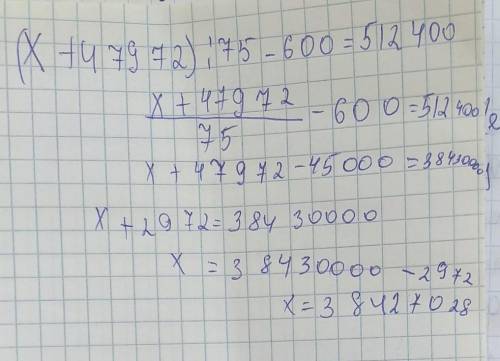 (X+47972):75-600=512400
x+47972
75
-600=512400
x+47972-45000=38430000
x+2972=38430000
x=38430000-2972
x=38427028